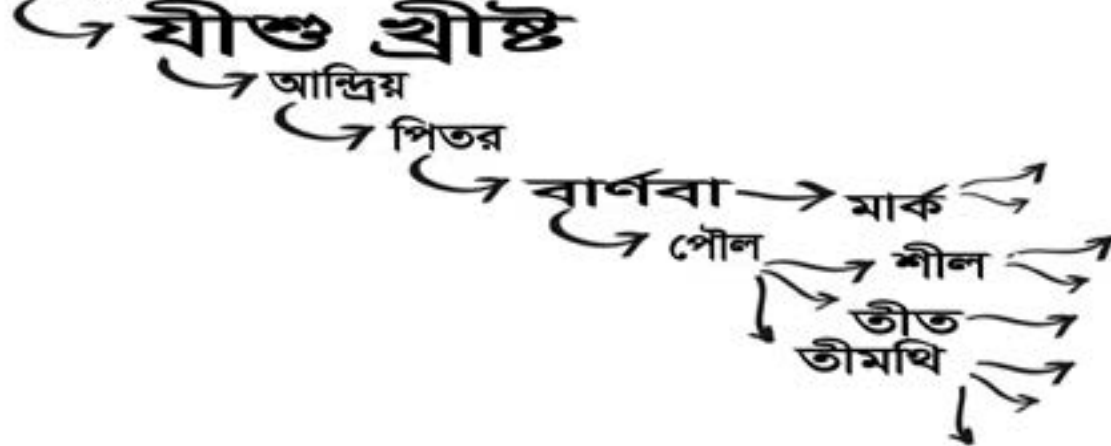 যীশু খ্রীষ্ট
আন্দ্রিয়
পিতর
বার্ণবা
মার্ক
পৌল
শীল
তীত
তীমথি